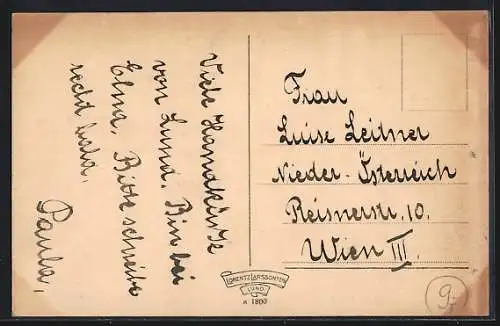 Viele Handküsse
von Lund. Bin bei
Elna. Bitte schreibe
recht bald.
Paula.
Frau
Luise Leitner
Nieder-Österreich
Reisnerstr. 10.
Wien III.
LORENTZ LARSSONTEN
LUND
n 1800